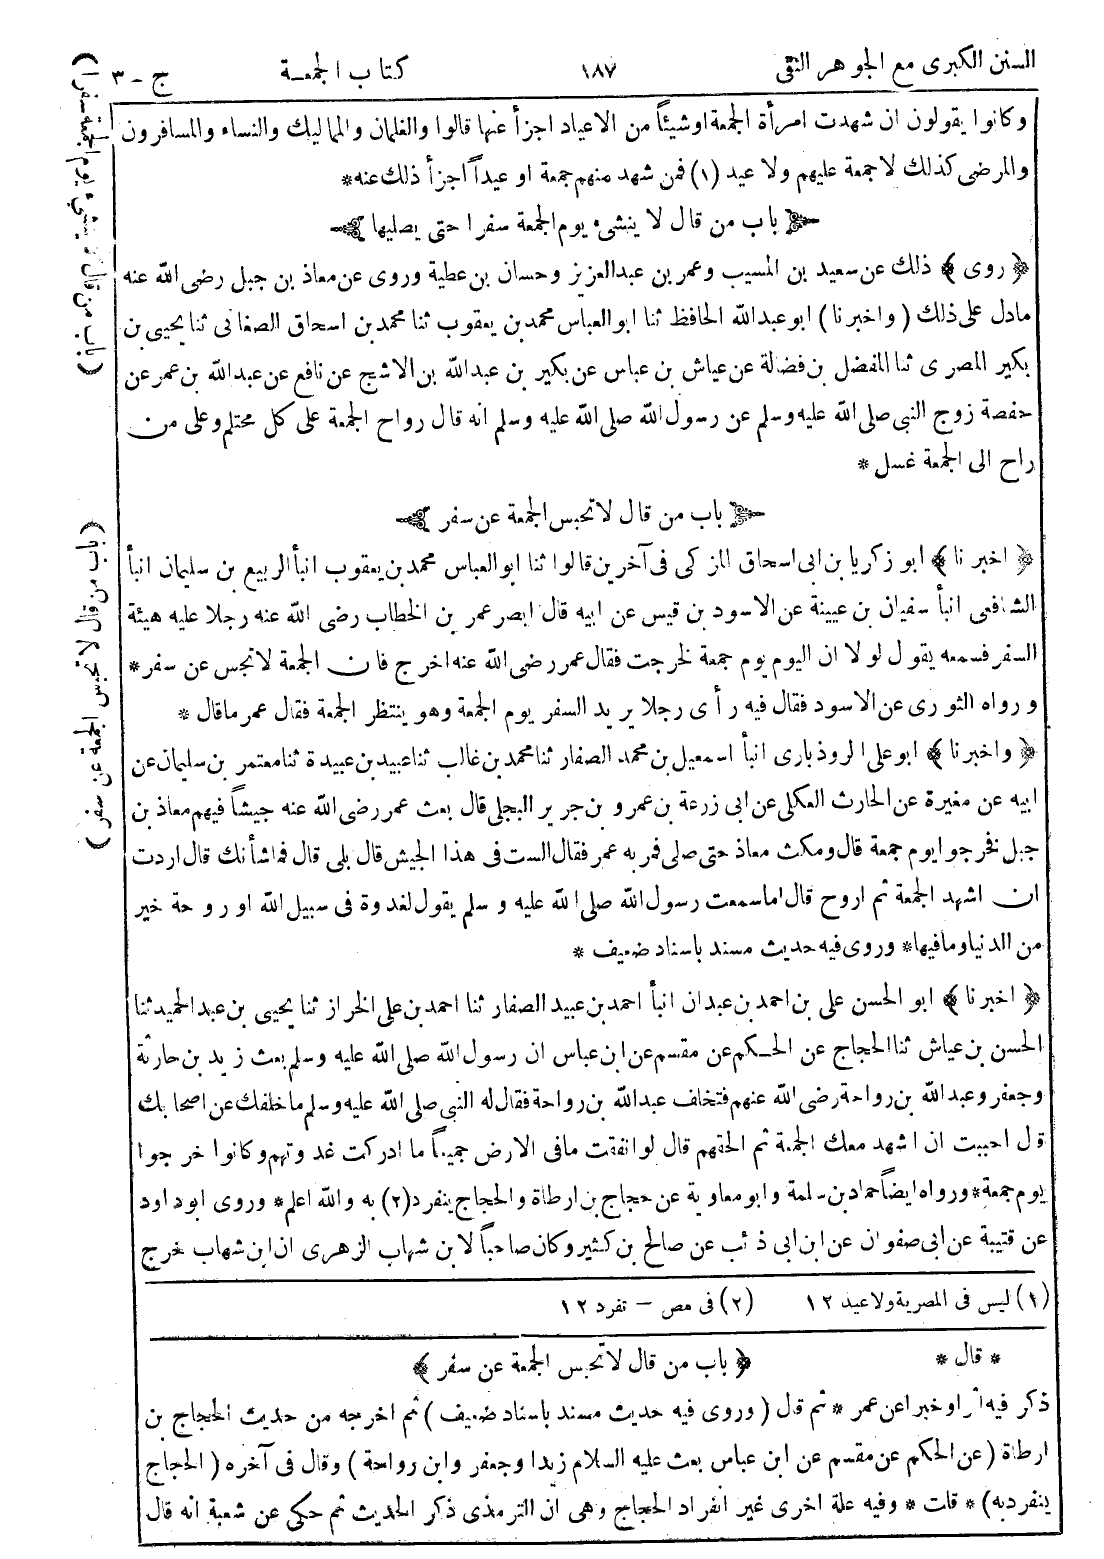 السنن الكبرى مع الجوهر النقى ١٨٧ كتاب الجمعة ج - ٣
وكانوا يقولون ان شهدت امرأة الجمعة اوشيئاً من الاعياد اجزأ عنها قالوا والغلمان والمماليك والنساء والمسافرون
والمرضى كذلك لا جمعة عليهم ولا عيد (١) فمن شهد منهم جمعة او عيداً اجزأ ذلك عنه*
﴿ باب من قال لا ينشىء يوم الجمعة سفرا حتى يصليها ﴾
﴿ روى ﴾ ذلك عن سعيد بن المسيب وعمر بن عبدالعزيز وحسان بن عطية وروى عن معاذ بن جبل رضى الله عنه
مادل على ذلك ( واخبرنا ) ابو عبدالله الحافظ ثنا ابو العباس محمد بن يعقوب ثنا محمد بن اسحاق الصغانى ثنا يحيى بن
بكير المصرى ثنا المفضل بن فضالة عن عياش بن عباس عن بكير بن عبدالله بن الاشج عن نافع عن عبدالله بن عمر عن
حفصة زوج النبى صلى الله عليه وسلم عن رسول الله صلى الله عليه وسلم انه قال رواح الجمعة على كل محتلم وعلى من
راح الى الجمعة غسل *
﴿ باب من قال لا تحبس الجمعة عن سفر ﴾
﴿ اخبرنا ﴾ ابو زكريا بن ابى اسحاق المزكى فى آخرين قالوا ثنا ابو العباس محمد بن يعقوب انبأ الربيع بن سليمان انبأ
الشافعى انبأ سفيان بن عيينة عن الاسود بن قيس عن ابيه قال ابصر عمر بن الخطاب رضى الله عنه رجلا عليه هيئة
السفر فسمعه يقول لولا ان اليوم يوم جمعة لخرجت فقال عمر رضى الله عنه اخرج فان الجمعة لا تحبس عن سفر*
ورواه الثورى عن الاسود فقال فيه رأى رجلا يريد السفر يوم الجمعة وهو ينتظر الجمعة فقال عمر ماقال *
﴿ واخبرنا ﴾ ابو على الروذبارى انبأ اسمعيل بن محمد الصفار ثنا محمد بن غالب ثنا عبيد بن عبيدة ثنا معتمر بن سليمان عن
ابيه عن مغيرة عن الحارث العكلى عن ابى زرعة بن عمرو بن جرير البجلى قال بعث عمر رضى الله عنه جيشاً فيهم معاذ بن
جبل فخرجوا يوم جمعة قال ومكث معاذ حتى صلى فمر به عمر فقال الست فى هذا الجيش قال بلى قال فما شأنك قال اردت
ان اشهد الجمعة ثم اروح قال اما سمعت رسول الله صلى الله عليه وسلم يقول لغدوة فى سبيل الله او روحة خير
من الدنيا ومافيها* وروى فيه حديث مسند باسناد ضعيف *
﴿ اخبرنا ﴾ ابو الحسن على بن احمد بن عبدان انبأ احمد بن عبيد الصفار ثنا احمد بن على الخراز ثنا يحيى بن عبد الحميد ثنا
الحسن بن عياش ثنا الحجاج عن الحكم عن مقسم عن ابن عباس ان رسول الله صلى الله عليه وسلم بعث زيد بن حارثة
وجعفر وعبدالله بن رواحة رضى الله عنهم فتخلف عبدالله بن رواحة فقال له النبى صلى الله عليه وسلم ما خلفك عن اصحابك
قال احببت ان اشهد معك الجمعة ثم الحقهم قال لو انفقت مافى الارض جميعاً ما ادركت غدوتهم وكانوا خرجوا
يوم جمعة* ورواه ايضاً حماد بن سلمة وابو معاوية عن حجاج بن ارطاة والحجاج ينفرد (٢) به والله اعلم* وروى ابو داود
عن قتيبة عن ابى صفوان عن ابن ابى ذئب عن صالح بن كثير وكان صاحباً لابن شهاب الزهرى ان ابن شهاب خرج
(١) ليس فى المصرية ولا عيد ١٢ (٢) فى مص - تفرد ١٢
* قال * ﴿ باب من قال لا تحبس الجمعة عن سفر ﴾
ذكر فيه اثراو خبرا عن عمر * ثم قال ( وروى فيه حديث مسند باسناد ضعيف ) ثم اخرجه من حديث الحجاج بن
ارطاة ( عن الحكم عن مقسم عن ابن عباس بعث عليه السلام زيدا وجعفر وابن رواحة ) وقال فى آخره ( الحجاج
ينفرد به) * قلت * وفيه علة اخرى غير انفراد الحجاج وهى ان الترمذى ذكر الحديث ثم حكى عن شعبة انه قال
(باب من قال لا ينشىء يوم الجمعة سفرا)
(باب من قال لا تحبس الجمعة عن سفر)